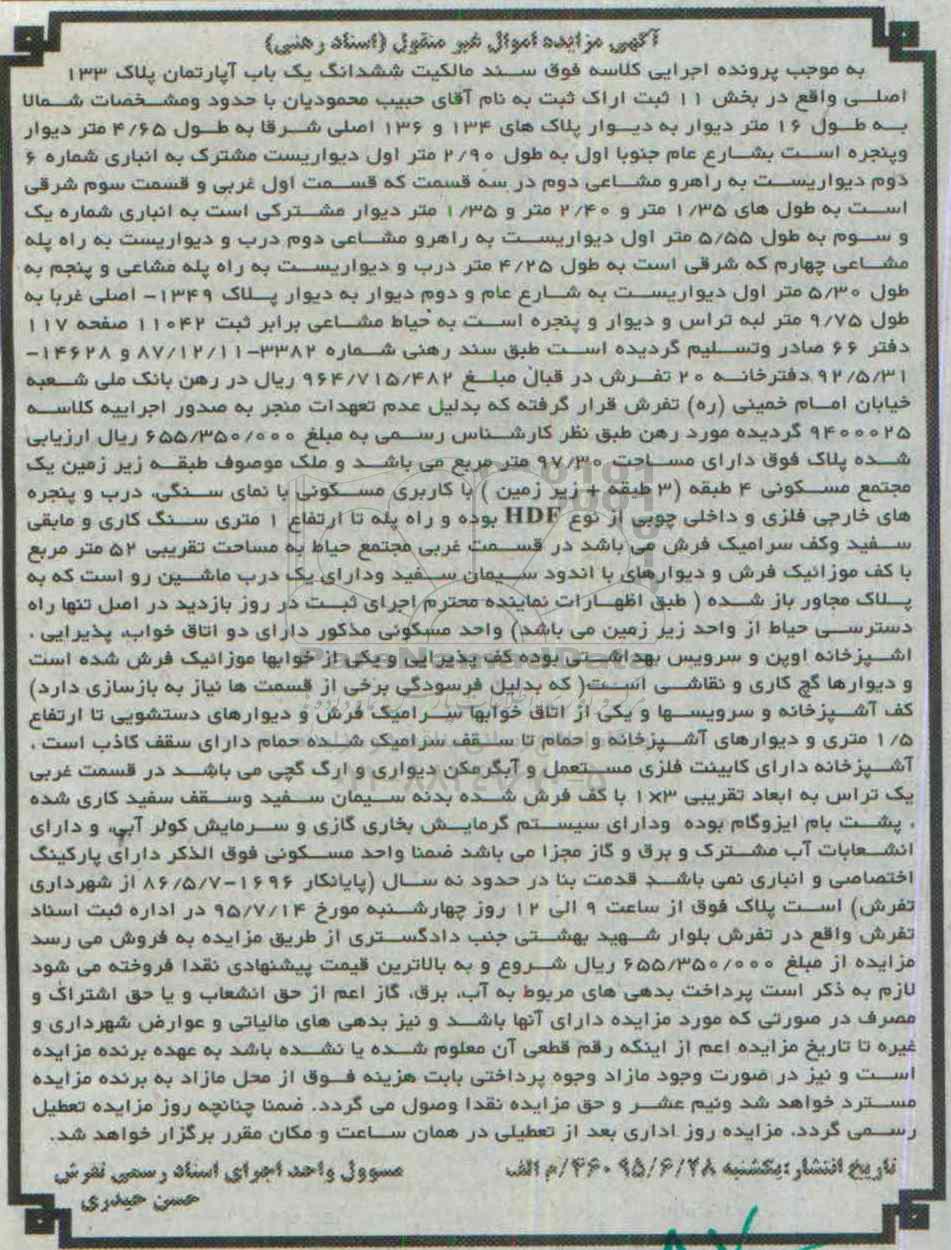 آگهی مزایده اموال غیر منقول (اسناد رهنی)
به موجب پرونده اجرایی کلاسه فوق سند مالکیت ششدانگ یک باب آپارتمان پلاک ۱۳۳
اصلی واقع در بخش ۱۱ ثبت اراک ثبت به نام آقای حبیب محمودیان با حدود ومشخصات شمالا
به طول ۱۶ متر دیوار به دیوار پلاک های ۱۳۴ و ۱۳۶ اصلی شرقا به طول ۴/۶۵ متر دیوار
وپنجره است بشارع عام جنوبا اول به طول ۲/۹۰ متر اول دیواریست مشترک به انباری شماره ۶
دوم دیواریست به راهرو مشاعی دوم در سه قسمت که قسمت اول غربی و قسمت سوم شرقی
است به طول های ۱/۳۵ متر و ۲/۴۰ متر و ۱/۳۵ متر دیوار مشترکی است به انباری شماره یک
و سوم به طول ۵/۵۵ متر اول دیواریست به راهرو مشاعی دوم درب و دیواریست به راه پله
مشاعی چهارم که شرقی است به طول ۴/۲۵ متر درب و دیواریست به راه پله مشاعی و پنجم به
طول ۵/۳۰ متر اول دیواریست به شارع عام و دوم دیوار به دیوار پلاک ۱۳۴۹- اصلی غربا به
طول ۹/۷۵ متر لبه تراس و دیوار و پنجره است به حیاط مشاعی برابر ثبت ۱۱۰۴۲ صفحه ۱۱۷
دفتر ۶۶ صادر وتسلیم گردیده است طبق سند رهنی شماره ۳۳۸۲-۸۷/۱۲/۱۱ و ۱۴۶۲۸-
۹۲/۵/۳۱ دفترخانه ۲۰ تفرش در قبال مبلغ ۹۶۴/۷۱۵/۴۸۲ ریال در رهن بانک ملی شعبه
خیابان امام خمینی (ره) تفرش قرار گرفته که بدلیل عدم تعهدات منجر به صدور اجراییه کلاسه
۹۴۰۰۰۲۵ گردیده مورد رهن طبق نظر کارشناس رسمی به مبلغ ۶۵۵/۳۵۰/۰۰۰ ریال ارزیابی
شده پلاک فوق دارای مساحت ۹۷/۳۰ متر مربع می باشد و ملک موصوف طبقه زیر زمین یک
مجتمع مسکونی ۴ طبقه (۳ طبقه + زیر زمین ) با کاربری مسکونی با نمای سنگی، درب و پنجره
های خارجی فلزی و داخلی چوبی از نوع HDF بوده و راه پله تا ارتفاع ۱ متری سنگ کاری و مابقی
سفید وکف سرامیک فرش می باشد در قسمت غربی مجتمع حیاط به مساحت تقریبی ۵۲ متر مربع
با کف موزائیک فرش و دیوارهای با اندود سیمان سفید ودارای یک درب ماشین رو است که به
پلاک مجاور باز شده ( طبق اظهارات نماینده محترم اجرای ثبت در روز بازدید در اصل تنها راه
دسترسی حیاط از واحد زیر زمین می باشد) واحد مسکونی مذکور دارای دو اتاق خواب، پذیرایی ،
اشپزخانه اوپن و سرویس بهداشتی بوده کف پذیرایی و یکی از خوابها موزائیک فرش شده است
و دیوارها گچ کاری و نقاشی است( که بدلیل فرسودگی برخی از قسمت ها نیاز به بازسازی دارد)
کف آشپزخانه و سرویسها و یکی از اتاق خوابها سرامیک فرش و دیوارهای دستشویی تا ارتفاع
۱/۵ متری و دیوارهای آشپزخانه و حمام تا سقف سرامیک شده حمام دارای سقف کاذب است ،
آشپزخانه دارای کابینت فلزی مستعمل و آبگرمکن دیواری و ارگ گچی می باشد در قسمت غربی
یک تراس به ابعاد تقریبی ۳×۱ با کف فرش شده بدنه سیمان سفید وسقف سفید کاری شده
، پشت بام ایزوگام بوده ودارای سیستم گرمایش بخاری گازی و سرمایش کولر آبی، و دارای
انشعابات آب مشترک و برق و گاز مجزا می باشد ضمنا واحد مسکونی فوق الذکر دارای پارکینگ
اختصاصی و انباری نمی باشد قدمت بنا در حدود نه سال (پایانکار ۱۶۹۶-۸۶/۵/۷ از شهرداری
تفرش) است پلاک فوق از ساعت ۹ الی ۱۲ روز چهارشنبه مورخ ۹۵/۷/۱۴ در اداره ثبت اسناد
تفرش واقع در تفرش بلوار شهید بهشتی جنب دادگستری از طریق مزایده به فروش می رسد
مزایده از مبلغ ۶۵۵/۳۵۰/۰۰۰ ریال شروع و به بالاترین قیمت پیشنهادی نقدا فروخته می شود
لازم به ذکر است پرداخت بدهی های مربوط به آب، برق، گاز اعم از حق انشعاب و یا حق اشتراک و
مصرف در صورتی که مورد مزایده دارای آنها باشد و نیز بدهی های مالیاتی و عوارض شهرداری و
غیره تا تاریخ مزایده اعم از اینکه رقم قطعی آن معلوم شده یا نشده باشد به عهده برنده مزایده
است و نیز در صورت وجود مازاد وجوه پرداختی بابت هزینه فوق از محل مازاد به برنده مزایده
مسترد خواهد شد ونیم عشر و حق مزایده نقدا وصول می گردد. ضمنا چنانچه روز مزایده تعطیل
رسمی گردد، مزایده روز اداری بعد از تعطیلی در همان ساعت و مکان مقرر برگزار خواهد شد.
تاریخ انتشار :یکشنبه ۹۵/۶/۲۸ ۴۶۰/م الف
مسوول واحد اجرای اسناد رسمی تفرش
حسن حیدری